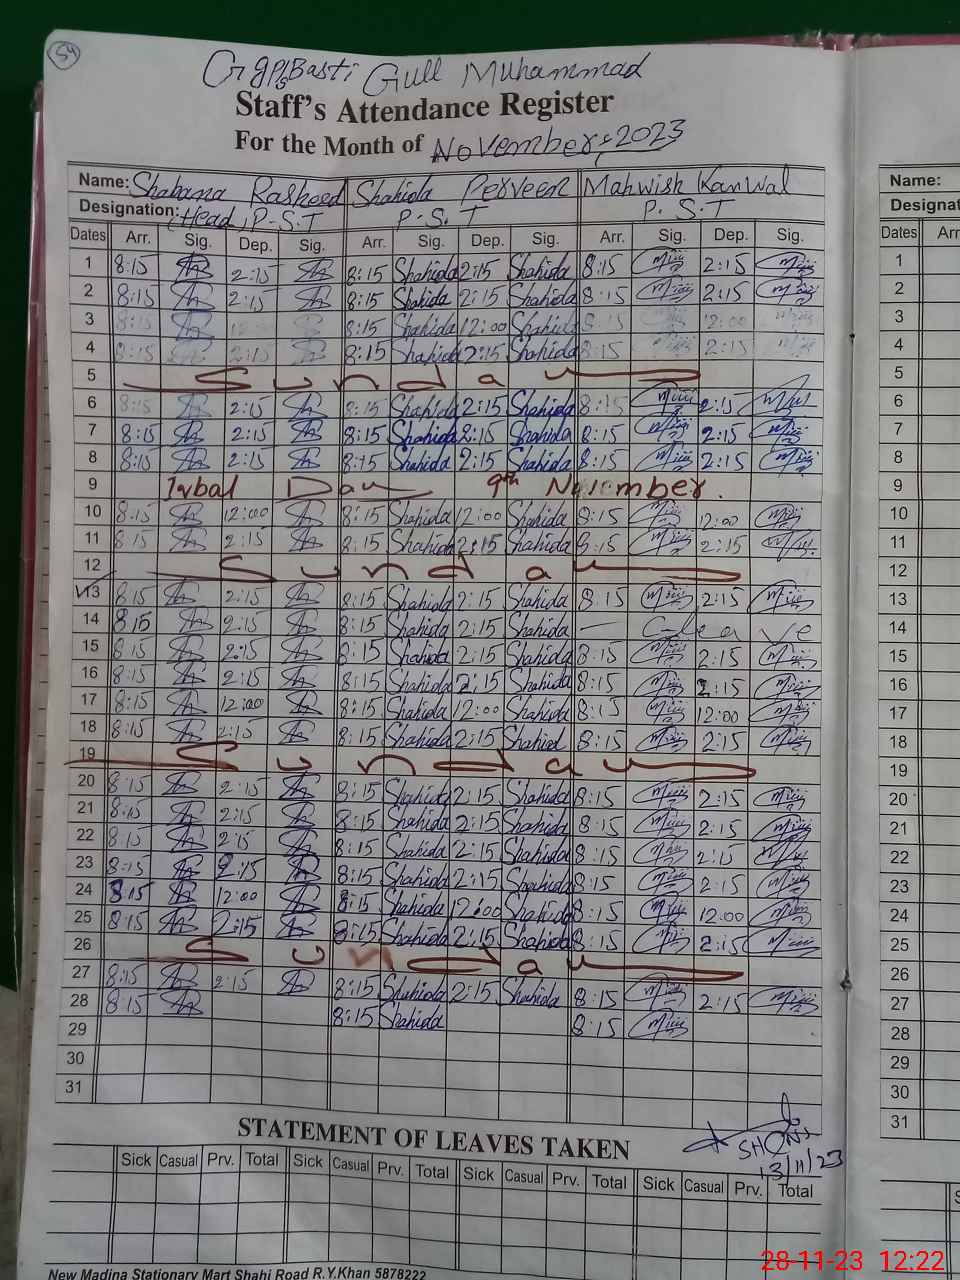 59
Ggps Basti Gull Muhammad
Staff's Attendance Register
For the Month of November, 2023
Name: Shabana Rasheed Shahida Perveen Mahwish Kanwal Name:
Designation: (Head) P.S.T P.S.T P.S.T Designat
Dates Arr. Sig. Dep. Sig. Arr. Sig. Dep. Sig. Arr. Sig. Dep. Sig. Dates Arr
1 8:15 2:15 8:15 Shahida 2:15 Shahida 8:15 2:15 1
2 8:15 2:15 8:15 Shahida 2:15 Shahida 8:15 2:15 2
3 8:15 12:00 8:15 Shahida 12:00 Shahida 8:15 12:00 3
4 8:15 2:15 8:15 Shahida 2:15 Shahida 8:15 2:15 4
5 Sunday 5
6 8:15 2:15 8:15 Shahida 2:15 Shahida 8:15 2:15 6
7 8:15 2:15 8:15 Shahida 2:15 Shahida 8:15 2:15 7
8 8:15 2:15 8:15 Shahida 2:15 Shahida 8:15 2:15 8
9 Iqbal Day 9th November. 9
10 8:15 12:00 8:15 Shahida 12:00 Shahida 8:15 12:00 10
11 8:15 2:15 8:15 Shahida 2:15 Shahida 8:15 2:15 11
12 Sunday 12
13 8:15 2:15 8:15 Shahida 2:15 Shahida 8:15 2:15 13
14 8:15 2:15 8:15 Shahida 2:15 Shahida — 14
15 8:15 2:15 8:15 Shahida 2:15 Shahida 8:15 2:15 15
16 8:15 2:15 8:15 Shahida 2:15 Shahida 8:15 2:15 16
17 8:15 12:00 8:15 Shahida 12:00 Shahida 8:15 12:00 17
18 8:15 2:15 8:15 Shahida 2:15 Shahid 8:15 2:15 18
19 Sunday 19
20 8:15 2:15 8:15 Shahida 2:15 Shahida 8:15 2:15 20
21 8:15 2:15 8:15 Shahida 2:15 Shahida 8:15 2:15 21
22 8:15 2:15 8:15 Shahida 2:15 Shahida 8:15 2:15 22
23 8:15 2:15 8:15 Shahida 2:15 Shahida 8:15 2:15 23
24 8:15 12:00 8:15 Shahida 12:00 Shahida 8:15 12:00 24
25 8:15 2:15 8:15 Shahida 2:15 Shahida 8:15 2:15 25
26 Sunday 26
27 8:15 2:15 8:15 Shahida 2:15 Shahida 8:15 2:15 27
28 8:15 8:15 Shahida 8:15 28
29 29
30 30
31 31
STATEMENT OF LEAVES TAKEN
13/11/23
Sick Casual Prv. Total Sick Casual Prv. Total Sick Casual Prv. Total Sick Casual Prv. Total S
New Madina Stationary Mart Shahi Road R.Y.Khan 5878222
28-11-23 12:22